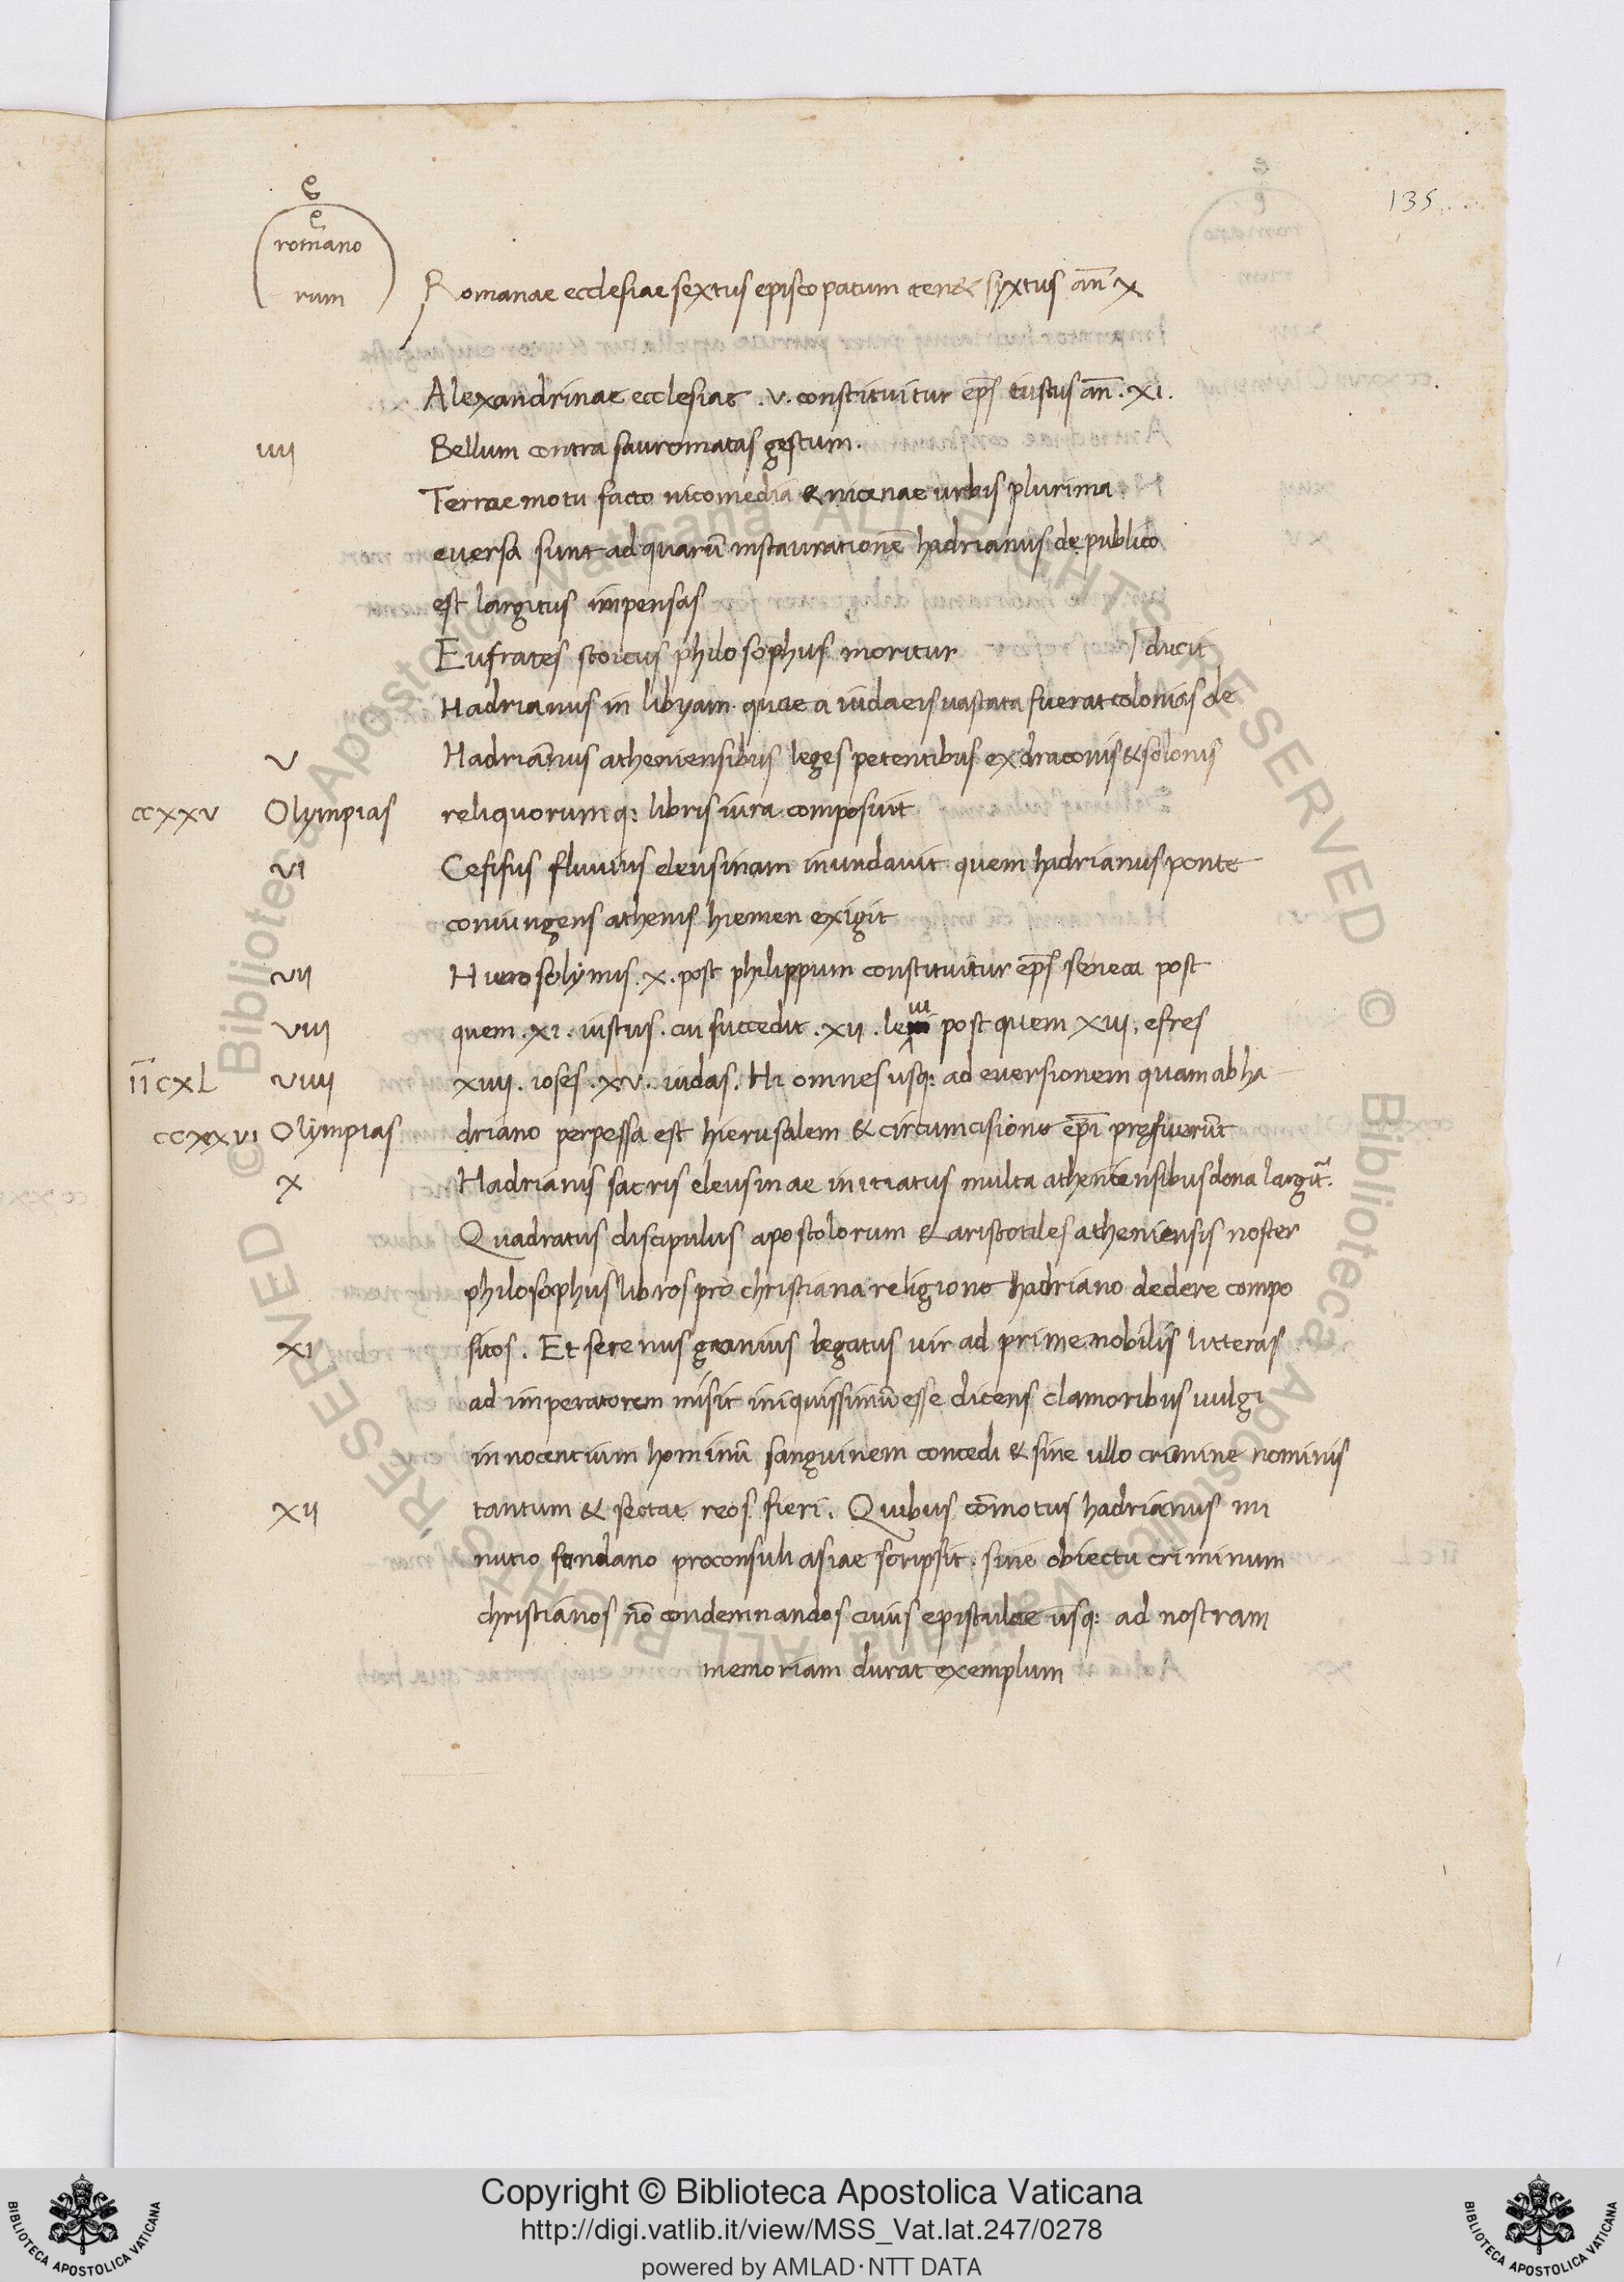 135
romano
rum
Romanae ecclesiae sextus episcopatum ten& syxtus an̄ x
Alexandrinae ecclesiae . v . constituitur ep̄s iustus an̄ . xi .
iiij Bellum contra sauromatas gestum .
Terrae motu facto nicomedia & nicenae urbis plurima
euersa sunt ad quarū instaurationē hadrianus de publico
est largitus impensas
Eufrates stoicus philosophus moritur / ducit
Hadrianus in libyam quae a iudaeis uastata fuerat colonias de
v Hadrianus atheniensibus leges petentibus ex draconis & solonis
ccxxv Olympias reliquorumq: libris iura composuit
vi Cefisus fluuius eleusinam inundauit quem hadrianus ponte
coniungens athenis hiemen exigit
vii Hierosolymis . x . post philippum constituitur ep̄s seneca post
viii quem . xi . iustus . cui succedit . xii . leui post quem xiii . efres
īīcxl viiii xiiii . ioses . xv . iudas . Hi omnes usq: ad euersionem quam ab ha
ccxxvi Olympias driano perpessa est hierusalem & circumcisione ep̄i pręfuerūt
x Hadrianus sacris eleusinae initiatus multa atheniensibus dona largit̄ .
Quadratus discipulus apostolorum & aristotiles atheniensis noster
philosophus libros pro christiana religione hadriano dedere compo
xi sitos . Et serenus granius legatus uir ad prime nobilis litteras
ad imperatorem misit iniquissimū esse dicens clamoribus uulgi
innocentium hominū sanguinem concedi & sine ullo crimine nominis
xii tantum & sectae reos fieri . Quibus cōmotus hadrianus mi
nutio fundano proconsuli asiae scripsit . sine obiectu criminum
christianos nō condemnandos cuius epistulae usq: ad nostram
memoriam durat exemplum
Copyright © Biblioteca Apostolica Vaticana
http://digi.vatlib.it/view/MSS_Vat.lat.247/0278
powered by AMLAD·NTT DATA
BIBLIOTECA APOSTOLICA VATICANA
BIBLIOTECA APOSTOLICA VATICANA
© Biblioteca Apostolica Vaticana ALL RIGHTS RESERVED
© Biblioteca Apostolica Vaticana ALL RIGHTS RESERVED